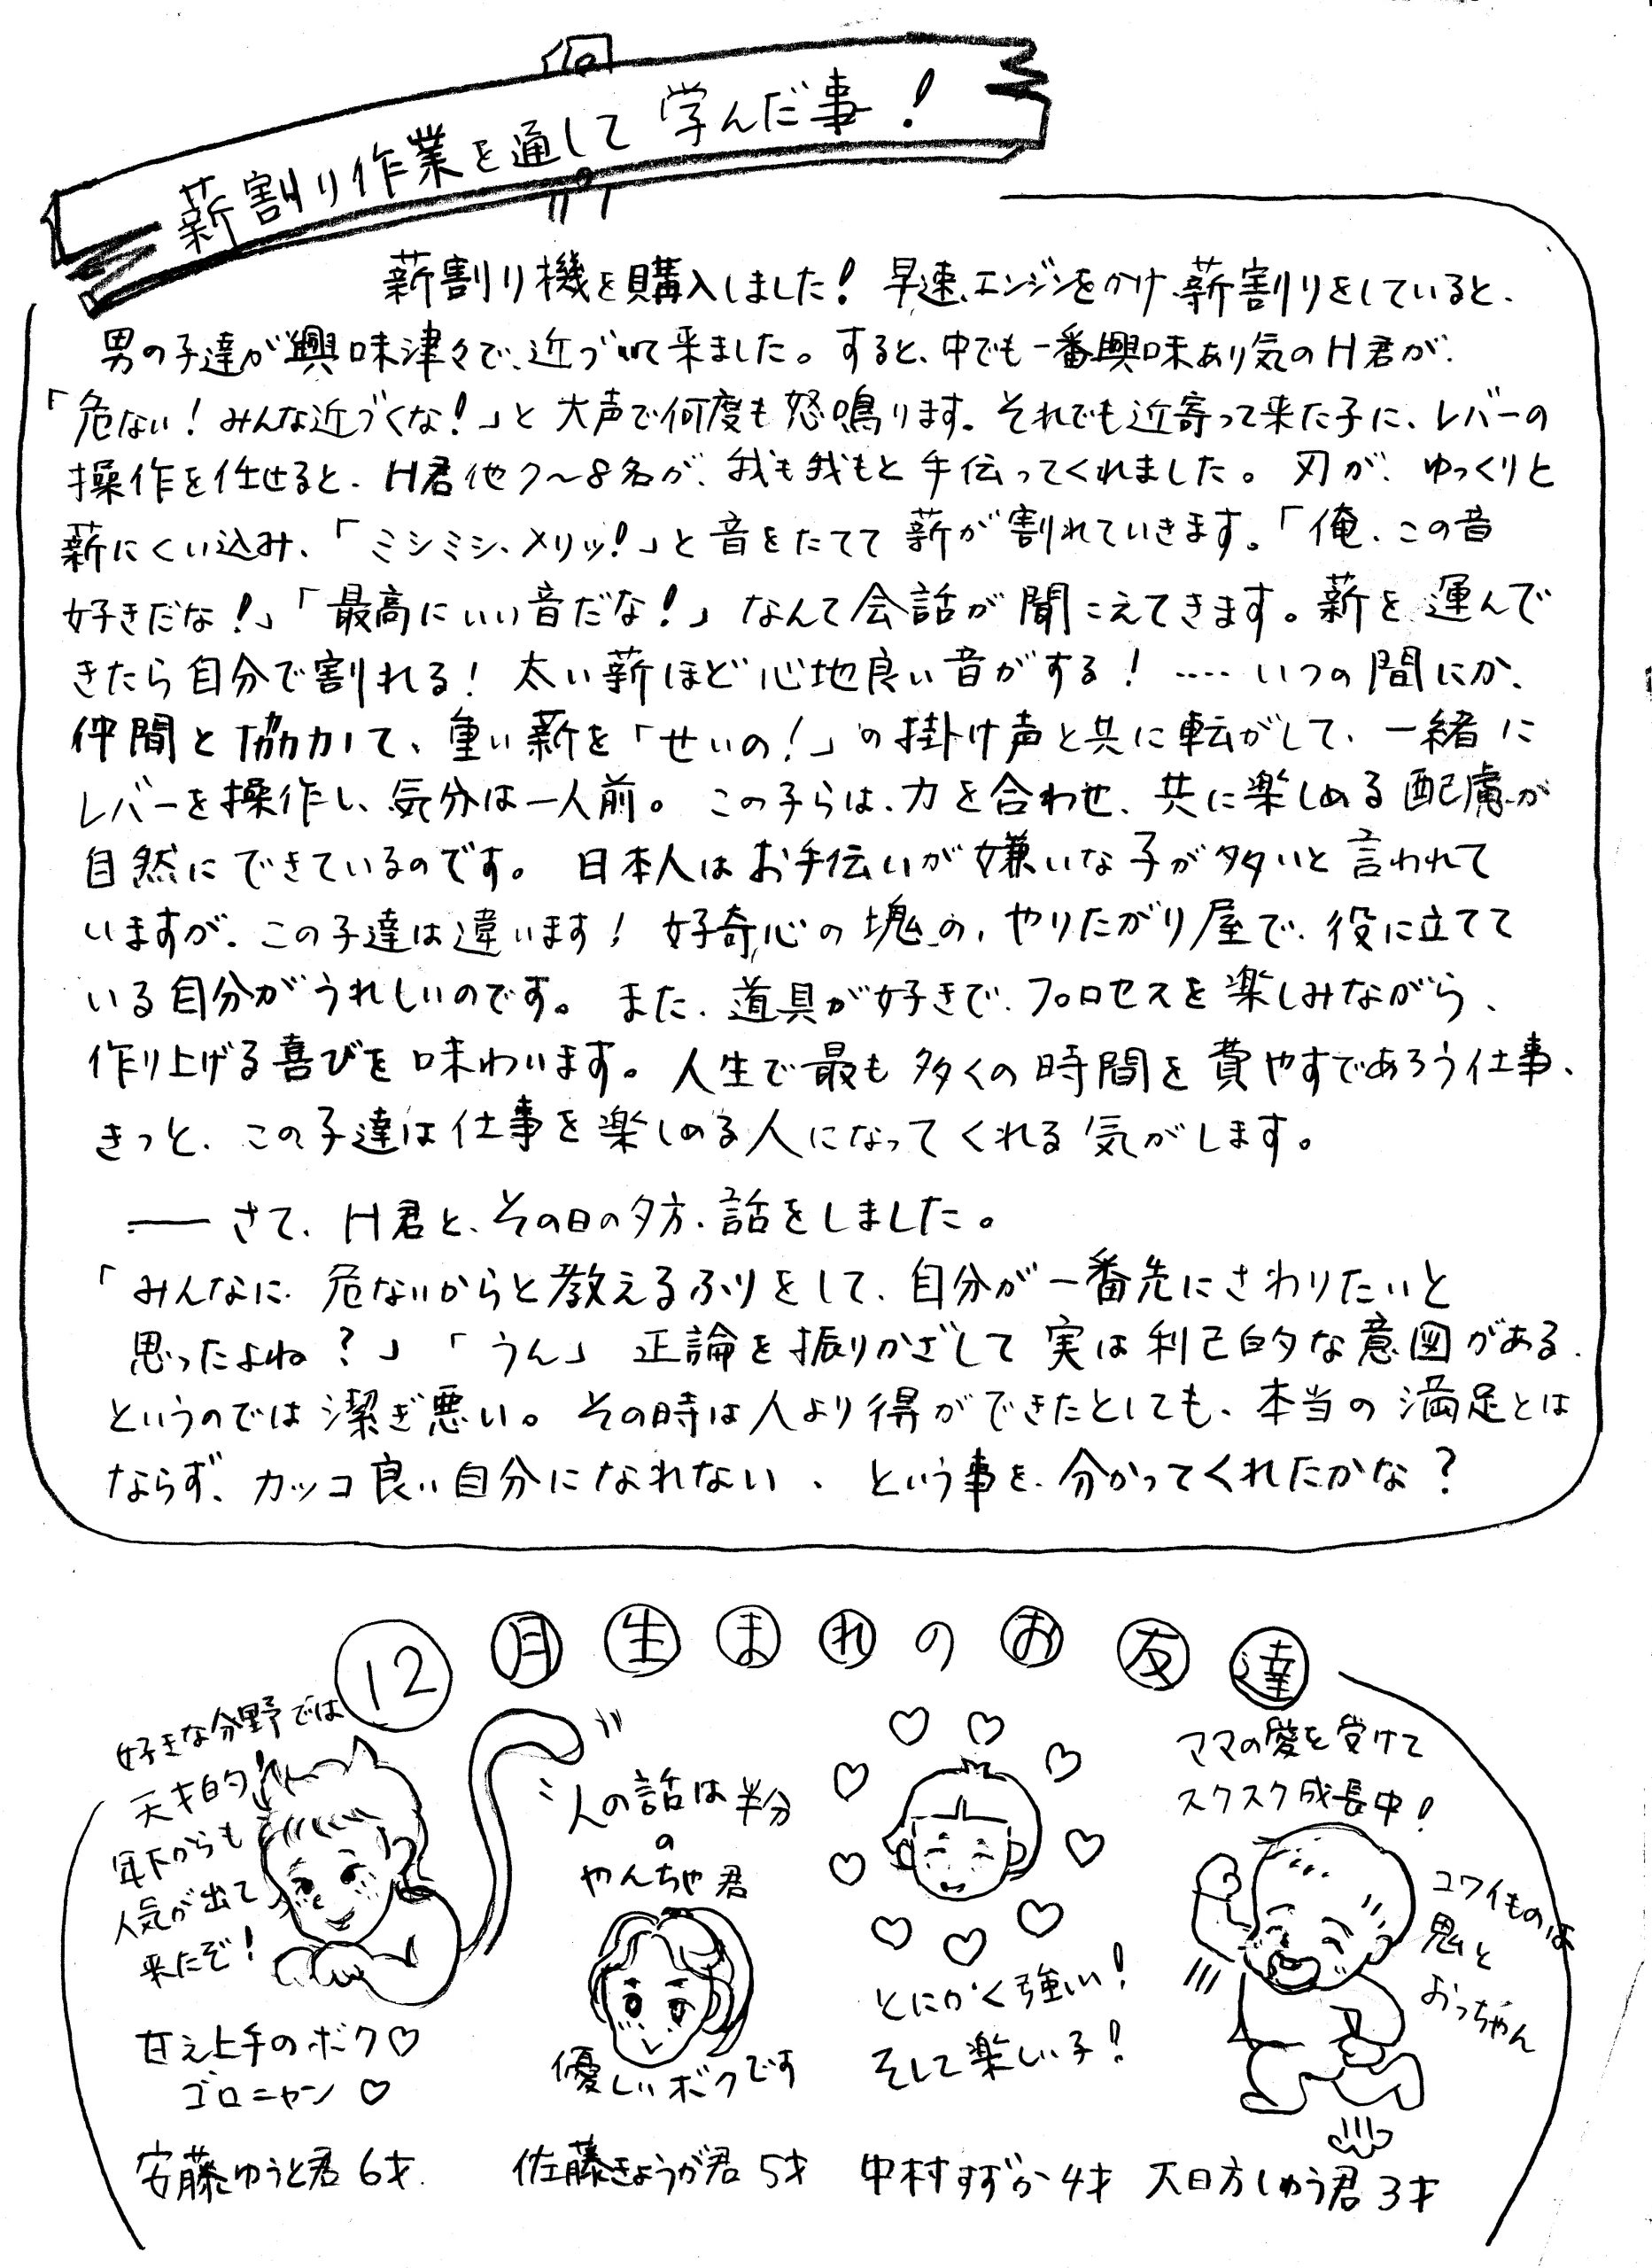 薪割り作業を通して学んだ事!
薪割り機を購入しました! 早速、エンジンをかけ、薪割りをしていると、
男の子達が興味津々で、近づいて来ました。すると、中でも一番興味あり気のH君が、
「危ない!みんな近づくな!」と大声で何度も怒鳴ります。それでも近寄って来た子に、レバーの
操作を任せると、H君他7〜8名が、我も我もと手伝ってくれました。刃が、ゆっくりと
薪にくい込み、「ミシミシ、メリッ!」と音をたてて薪が割れていきます。「俺、この音
好きだな!」「最高にいい音だな!」なんて会話が聞こえてきます。薪を運んで
きたら自分で割れる! 太い薪ほど心地良い音がする! ‥‥いつの間にか、
仲間と協力して、重い薪を「せいの!」の掛け声と共に転がして、一緒に
レバーを操作し、気分は一人前。この子らは、力を合わせ、共に楽しめる配慮が
自然にできているのです。日本人はお手伝いが嫌いな子が多いと言われて
いますが、この子達は違います! 好奇心の塊の、やりたがり屋で、役に立てて
いる自分がうれしいのです。また、道具が好きで、プロセスを楽しみながら、
作り上げる喜びを味わいます。人生で最も多くの時間を費やすであろう仕事、
きっと、この子達は仕事を楽しめる人になってくれる気がします。
――さて、H君と、その日の夕方、話をしました。
「みんなに、危ないからと教えるふりをして、自分が一番先にさわりたいと
思ったよね?」「うん」正論を振りかざして実は利己的な意図がある、
というのでは潔ぎ悪い。その時は人より得ができたとしても、本当の満足とは
ならず、カッコ良い自分になれない、という事を、分かってくれたかな?
12月生まれのお友達
好きな分野では
天才的!
年下からも
人気が出て
来たぞ!
甘え上手のボク♡
ゴロニャン♡
安藤ゆうと君 6才
人の話は半分
の
やんちゃ君
優しいボクです
佐藤きょうが君 5才
とにかく強い!
そして楽しい子!
中村すずか 4才
ママの愛を受けて
スクスク成長中!
コワイものは
鬼と
おっちゃん
大日方しゅう君 3才